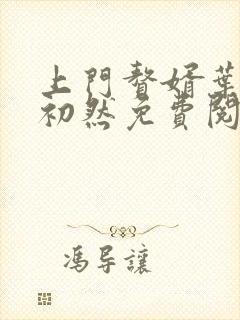 上門贅婿葉
初然免費閱
馮导讓